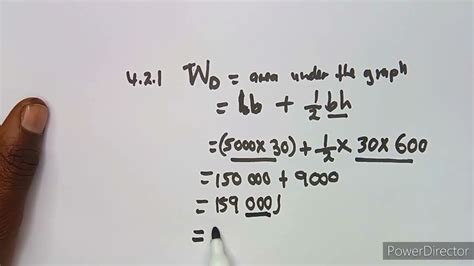 4.2.1 W_D = area under the graph
= lb + ½ bh
= (5000 x 30) + ½ x 30 x 600
= 150 000 + 9000
= 159 000 J
=
PowerDirector